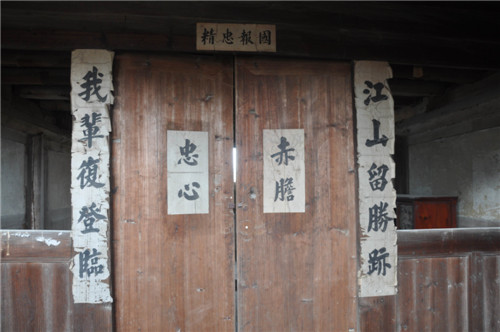 精忠報國
江山留勝跡
我輩復登臨
赤膽
忠心